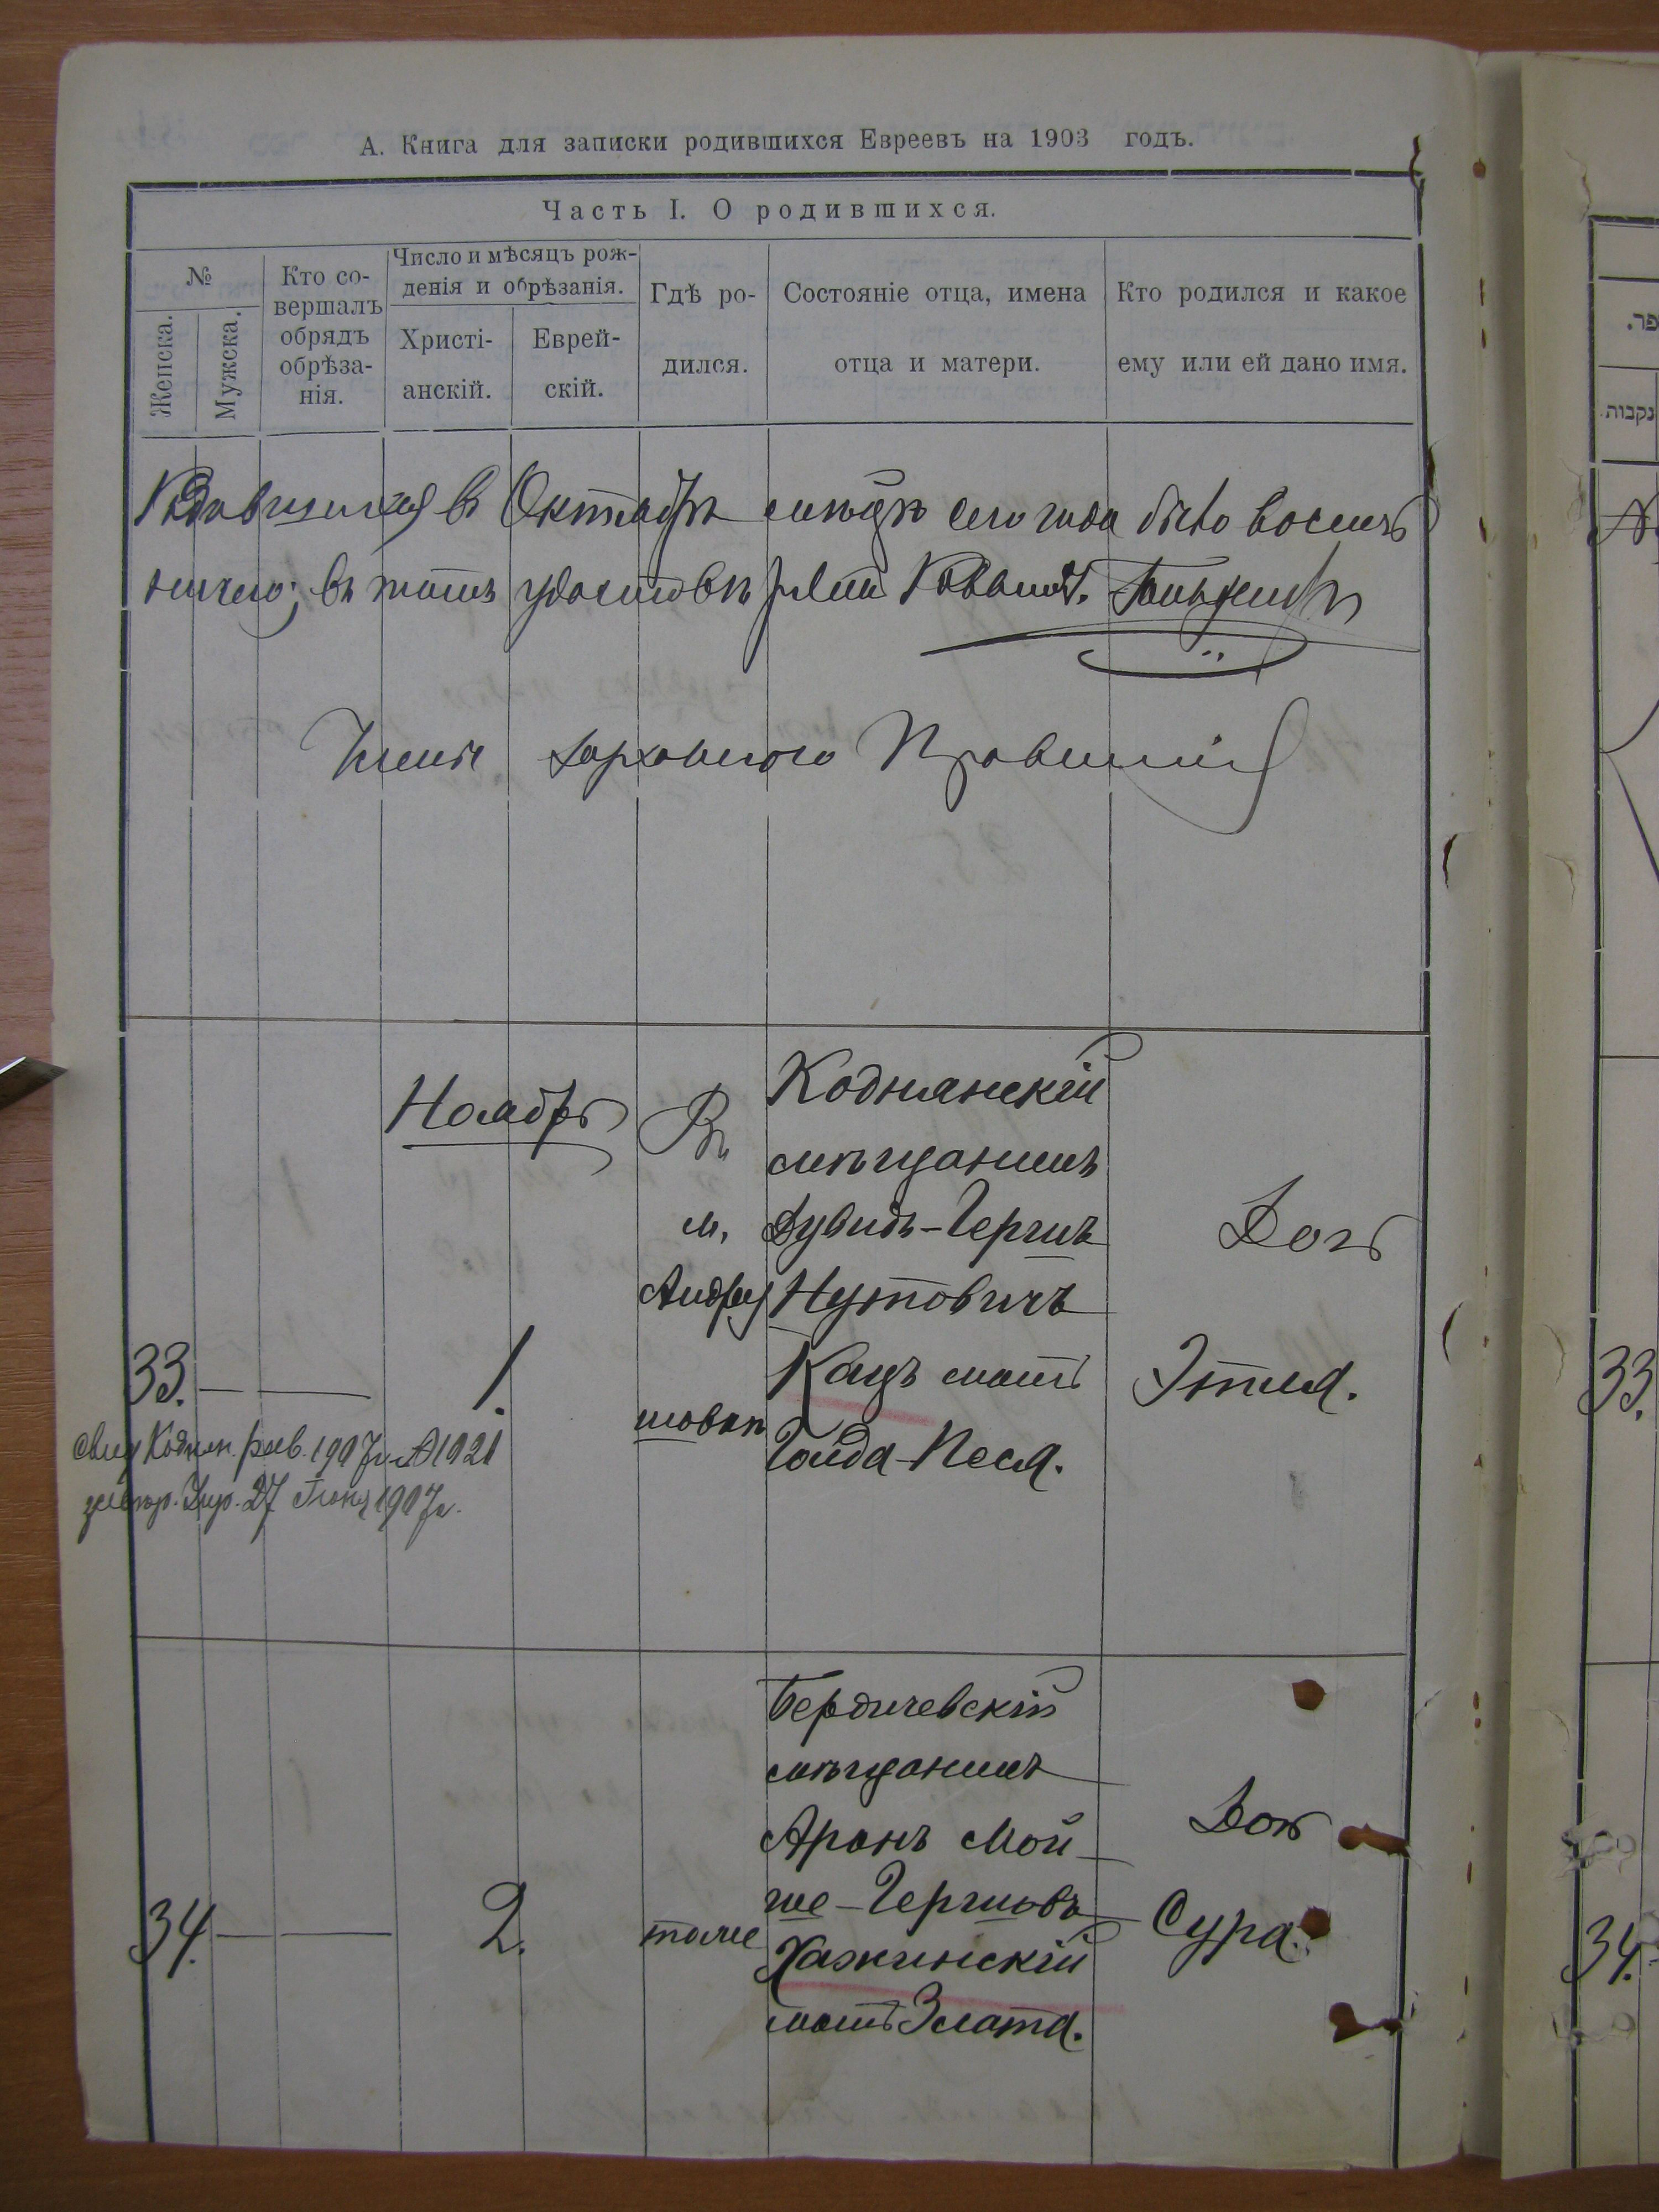 А. Книга для записки родившихся Евреевъ на 1903 годъ.
Часть I. О родившихся.
№
Женска.
Мужска.
Кто со-
вершалъ
обрядъ
обрѣза-
нія.
Число и мѣсяцъ рож-
денія и обрѣзанія.
Христі-
анскій.
Еврей-
скій.
Гдѣ ро-
дился.
Состояніе отца, имена
отца и матери.
Кто родился и какое
ему или ей дано имя.
Родившихся въ Октябрѣ мѣсяцѣ сего года было восемь
въ томъ
Члены Духовного Правленія
33.
Ноябрь
1.
Въ
м.
Андру
шовкѣ
Коднянскій
мѣщанинъ
Дувидъ-Гершъ
Нутовичъ
Кацъ мать
Голда-Песя.
Дочь
Этля.
1907г. № 1921
27 Іюня 1907г.
34.
2.
тоже
Бердичевскій
мѣщанинъ
Аронъ Мой
ше-Гершовъ
Хажинскій
мать Злата.
Дочь
Сура.
נקבות
33.
34.